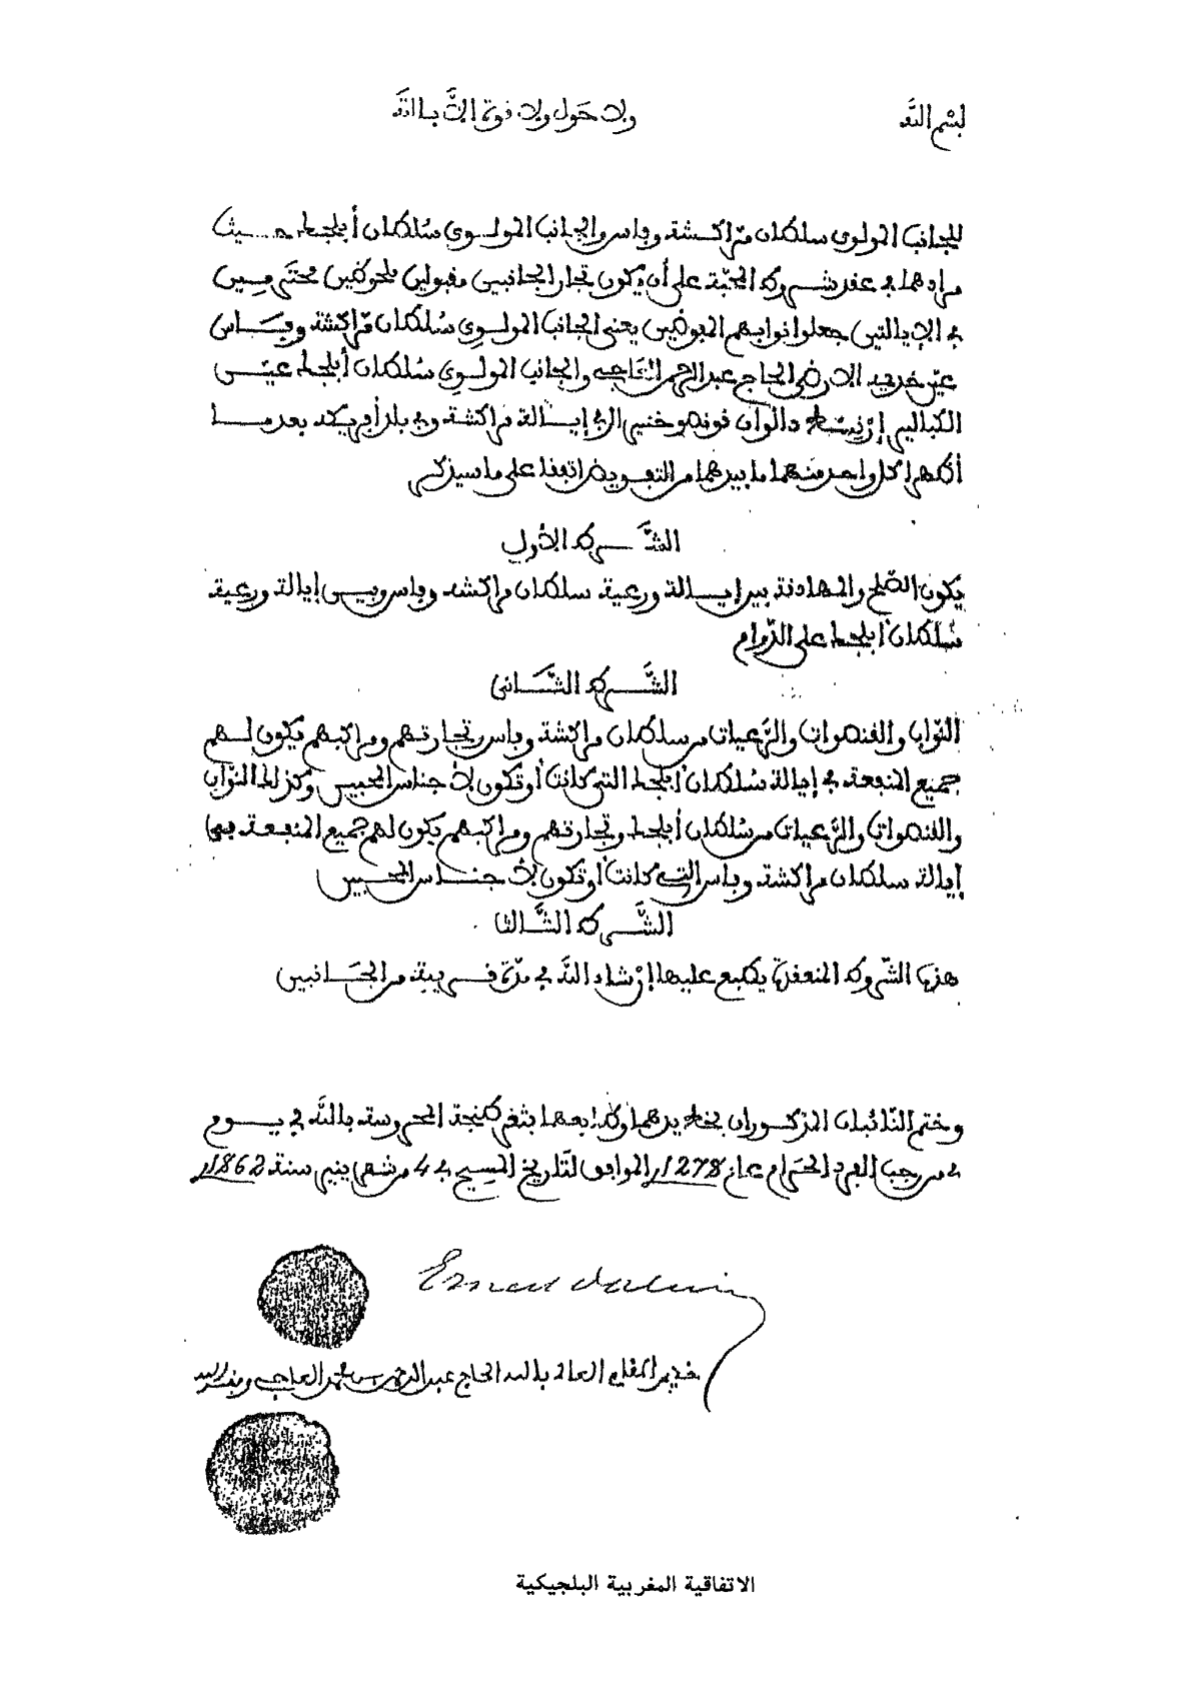 بسم الله ولا حول ولا قوة إلا بالله
للجانب المولوي سلطان مراكشة وفاس والجانب المولوي سلطان أبلجط حيث
مرادهما في عقد شروط المحبة على أن يكون تجار الجانبين مقبولين ملحوظين محترمين
في الإيالتين جعلوا نوابهم المفوضين يعني الجانب المولوي سلطان مراكشة وفاس
عين خديمه الارضى الحاج عبد الرحمن العاجي والجانب المولوي سلطان أبلجط عين
الكبالير إرنست دالوان قونصو خنير في إيالة مراكشة وفي بلد أفريكة بعد ما
أظهرا كل واحد منهما ما بيدهما من التفويض اتفقا على ما سيذكر
الشرط الأول
يكون الصلح والمهادنة بين إيالة ورعية سلطان مراكشة وفاس وبين إيالة ورعية
سلطان أبلجط على الدوام
الشرط الثاني
النواب والقنصوات والرعيات من سلطان مراكشة وفاس وتجارتهم ومراكبهم يكون لهم
جميع المنفعة في إيالة سلطان أبلجط التي كانت أو تكون لأجناس الحبيبين وكذلك النواب
والقنصوات والرعيات من سلطان أبلجط وتجارتهم ومراكبهم يكون لهم جميع المنفعة في
إيالة سلطان مراكشة وفاس التي كانت أو تكون لأجناس المحبين
الشرط الثالث
هذه الشروط المنعقدة يطبع عليها إن شاء الله في مدة قريبة من الجانبين
وختم النائبان المذكوران بخط يدهما وطابعهما بثغر طنجة المحروسة بالله في يوم
من رجب الفرد الحرام عام 1278 الموافق لتاريخ المسيح في 4 من شهر ينير سنة 1862
Ernest Daluin
خديم المقام العالي بالله الحاج عبد الرحمن بن محمد العاجي وفقه الله
الاتفاقية المغربية البلجيكية